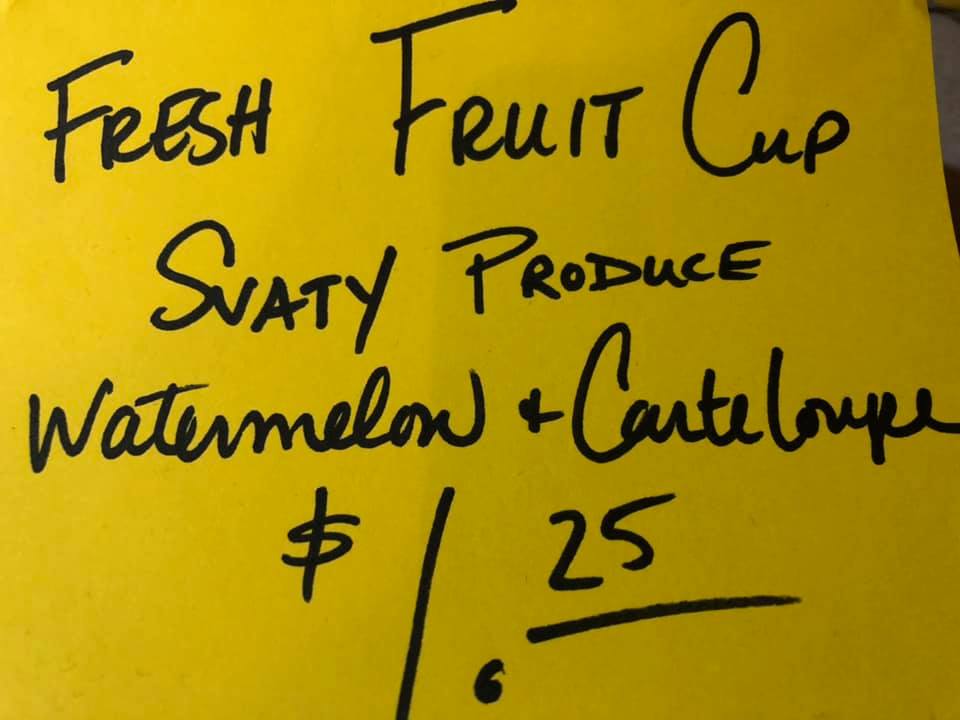 FRESH FRUIT CUP
SVATY PRODUCE
Watermelon + Canteloupe
$1.25